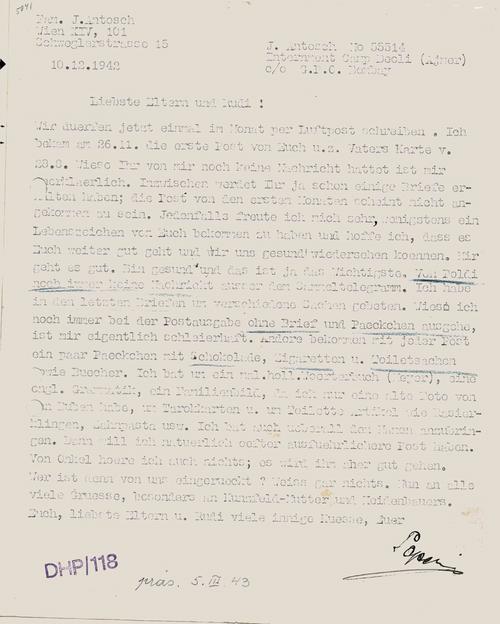 5841
Fam. J. Antosch
Wien XIV, 101
Schweglerstrasse 15
10.12.1942
J. Antosch No 55514
Internment Camp Deoli (Ajmer)
c/o G.P.O. Bombay
Liebste Eltern und Rudi !
Wir duerfen jetzt einmal im Monat per Luftpost schreiben . Ich
bekam am 26.11. die erste Post von Euch u.z. Vaters Karte v.
28.8. Wieso Ihr von mir noch keine Nachricht hattet ist mir
unerklaerlich. Inzwischen werdet Ihr ja schon einige Briefe er-
halten haben; die Post von den ersten Monaten scheint nicht an-
gekommen zu sein. Jedenfalls freute ich mich sehr, wenigstens ein
Lebenszeichen von Euch bekommen zu haben und hoffe ich, dass es
Euch weiter gut geht und wir uns gesund wiedersehen koennen. Mir
geht es gut. Bin gesund und das ist ja das Wichtigste. Von Poldi
noch immer keine Nachricht ausser dem Sammeltelegramm. Ich habe
in den letzten Briefen um verschiedene Sachen gebeten. Wieso ich
noch immer bei der Postausgabe ohne Brief und Paeckchen ausgehe,
ist mir eigentlich schleierhaft. Andere bekommen mit jeder Post
ein paar Paeckchen mit Schokolade, Zigaretten u. Toilettsachen
sowie Buecher. Ich bat um ein mal.holl.Woerterbuch eine
engl. Gramatik, ein Familienbild, da ich nur eine alte Foto von
in Tuben habe, um Tarokkarten u. um Toilette Artikel wie Rasier-
klingen, Zahnpasta usw. Ich bat auch ueberall den Namen anzubrin-
gen. Dann will ich natuerlich oefter ausfuehrlichere Post haben.
Von Onkel hoere ich auch nichts; es wird ihm aber gut gehen.
Wer ist denn von uns eingerueckt ? Weiss gar nichts. Nun an alle
viele Gruesse, besonders an Mutter und Heidenbauers.
Euch, liebste Eltern u. Rudi viele innige Kuesse, Euer
Pepi
DHP/118
präs. 5. III. 43